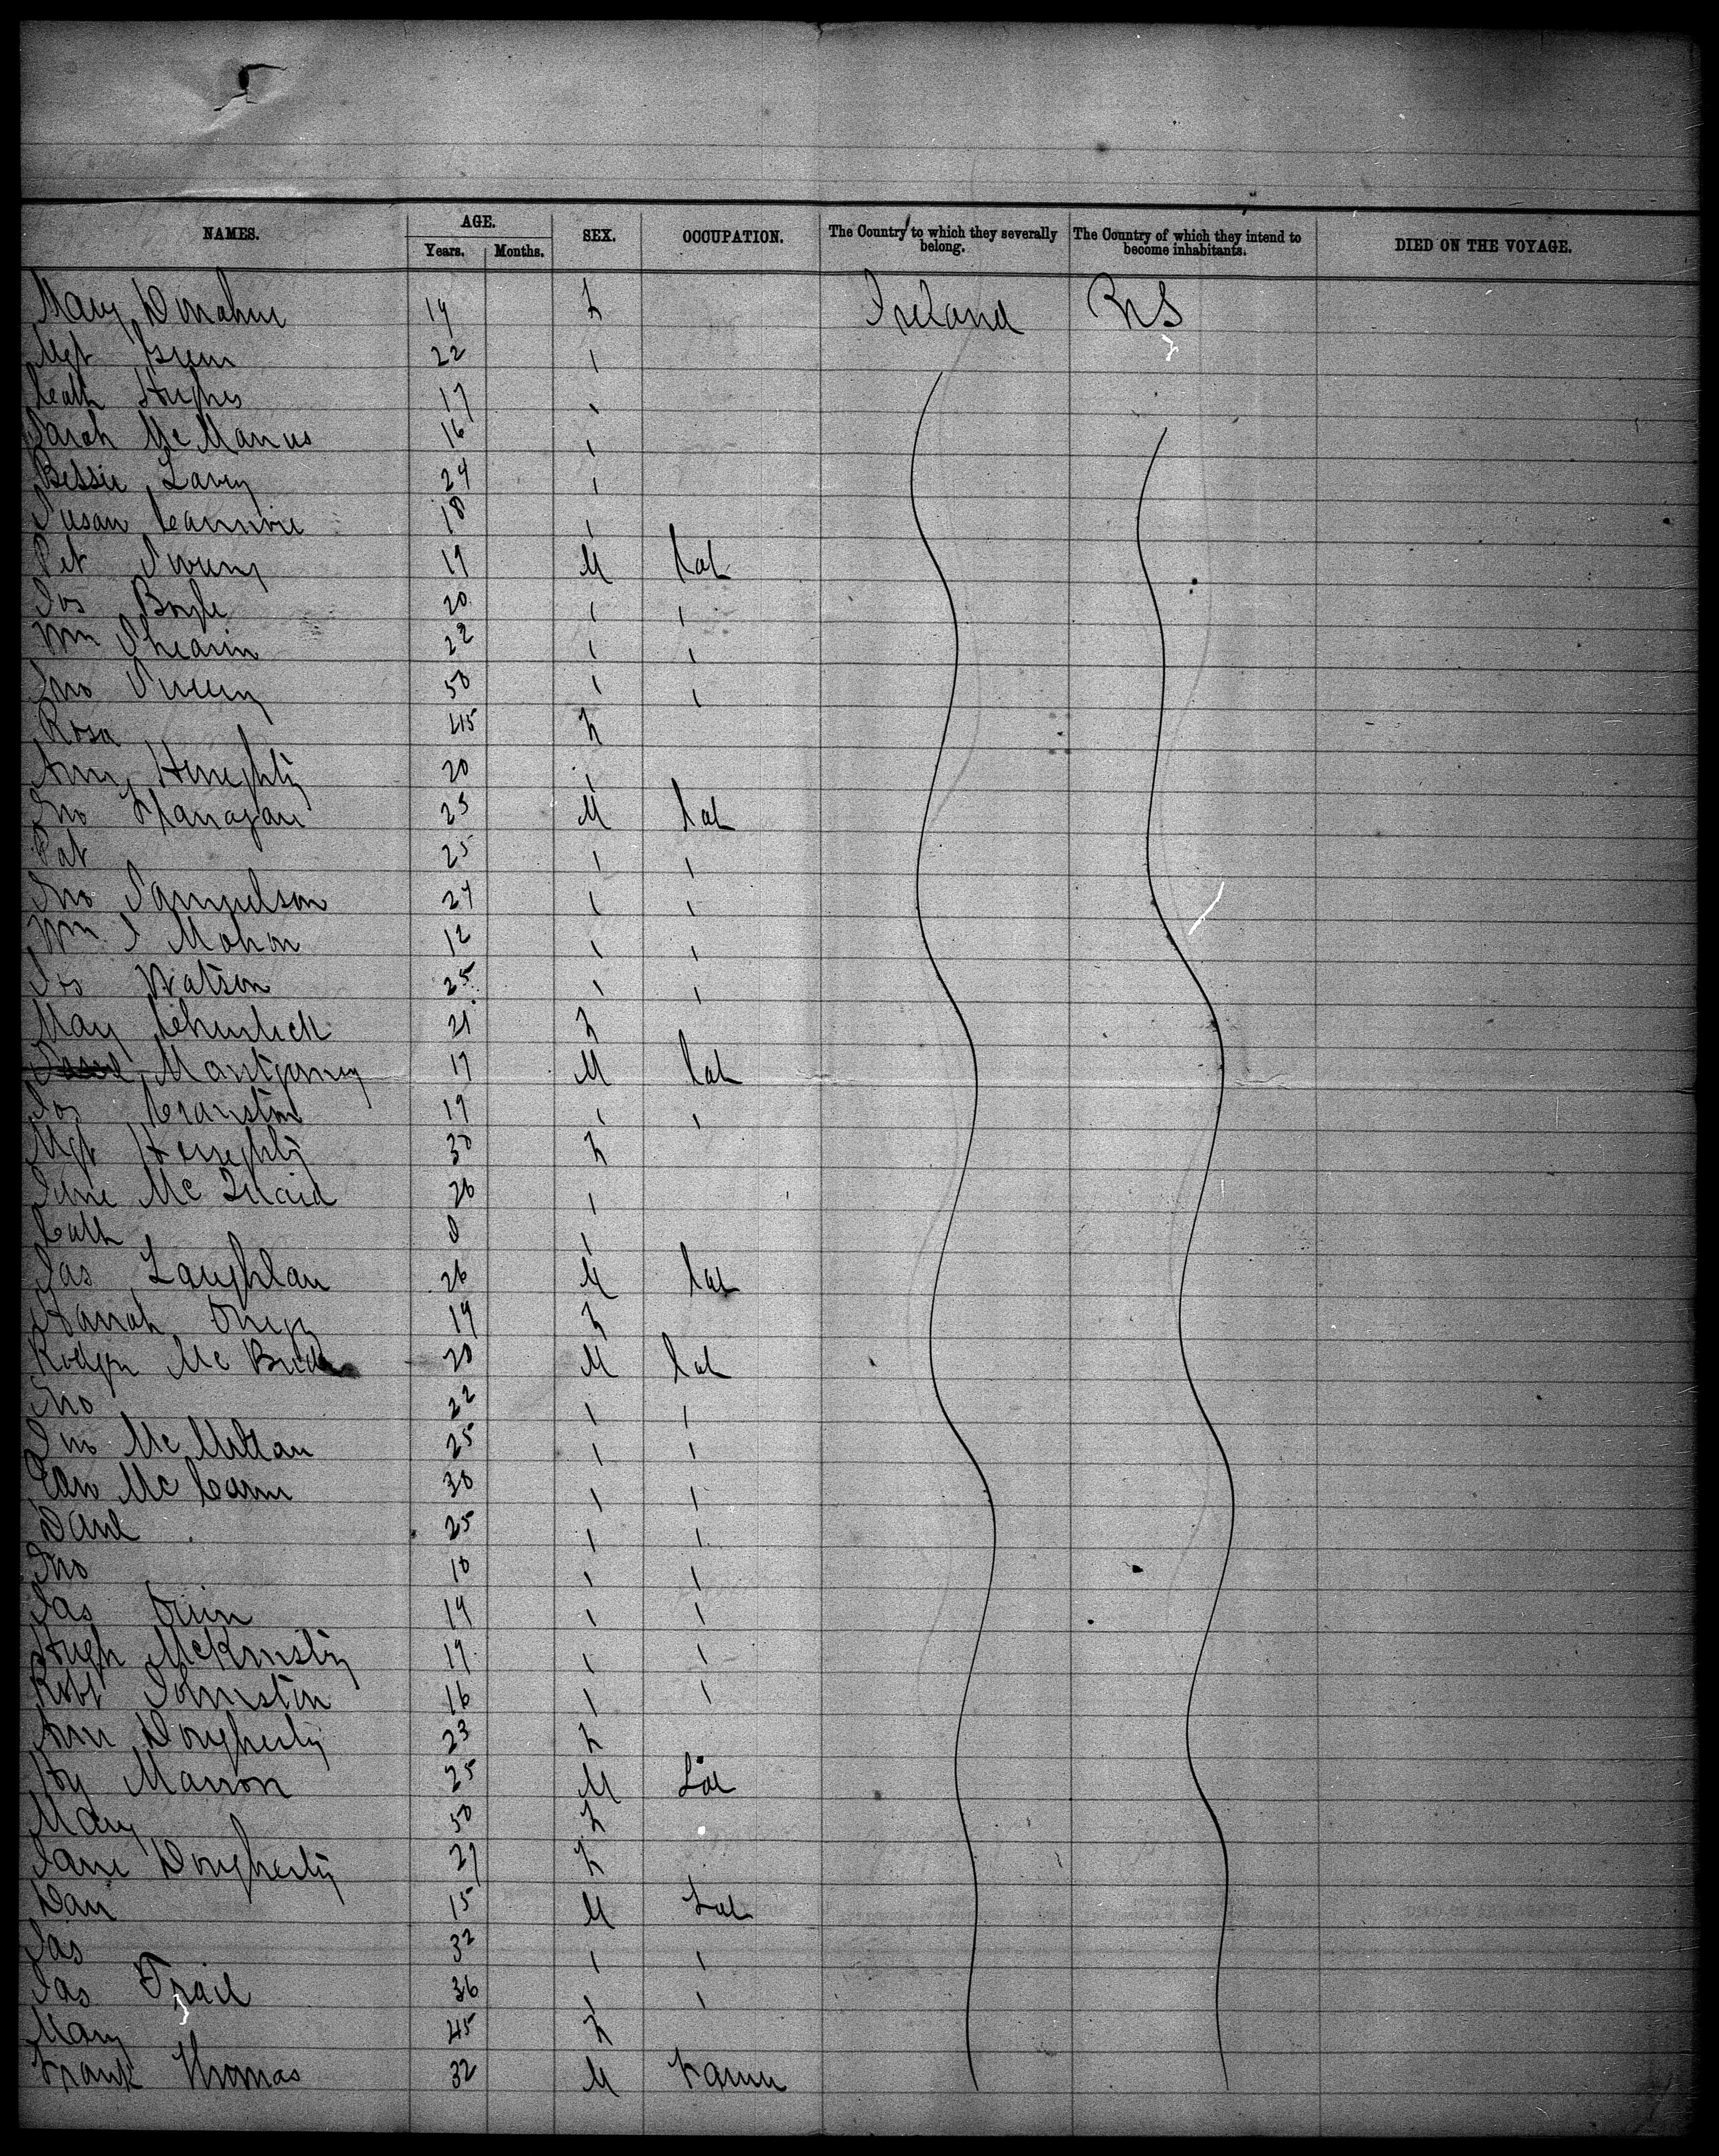 NAMES. AGE. SEX. OCCUPATION. The Country to which they severally belong. The Country of which they intend to become inhabitants. DIED ON THE VOYAGE.
Years. Months.
Mary Donahue 19 F Ireland
Mgt 22 "
Cath Hughes 17 "
Sarah McManus 16 "
Bessie Lavery 24 "
Susan 18 "
Pat Sweeny 19 M Lab
Jos Boyle 20 " "
Wm 22 " "
Jno Sweeny 50 " "
Rosa 45 F
Ann 20 "
Jno Flanagan 25 M Lab
Pat 25 " "
Jno Samuelson 24 " "
Wm J Mohon 12 " "
Jos Watson 25 " "
Mary 21 F
Montgomery 17 M Lab
Jos Cranston 19 " "
Mgt 30 F
Jane McQuaid 26 "
Cath 8 "
Jas Laughlan 26 M Lab
Hannah 19 F
Rodger McBride 20 M Lab
Jno 22 " "
Jno McMillan 25 " "
Edw McCann 30 " "
Danl 25 " "
Jno 10 " "
Jas 19 " "
Hugh McKinstry 19 " "
Robt Johnston 16 " "
Ann Dougherty 23 F
Hy Marron 25 M Lab
Mary 50 F
Jane Dougherty 27 F
Dan 15 M Lab
Jas 32 " "
Jas Trail 36 " "
Mary 45 F
Frank Thomas 32 M Farmr